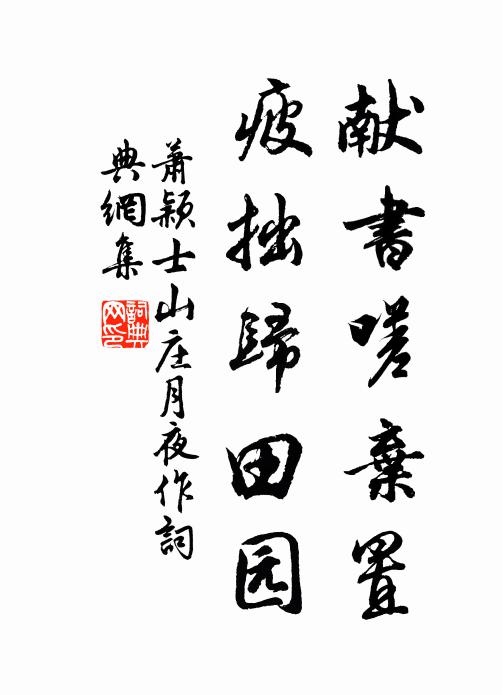 献書嗟棄置
疲拙歸田园
蕭穎士山庄月夜作詞
典網集
詞典
网印